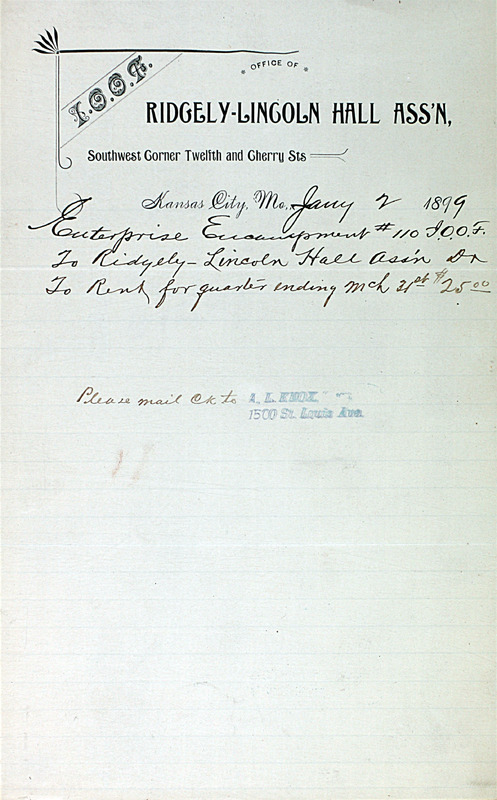 I.O.O.F.
OFFICE OF
RIDGELY-LINCOLN HALL ASS'N,
Southwest Corner Twelfth and Cherry Sts
Kansas City, Mo, Jany 2 1899
Enterprise Encampment #110 I.O.O.F.
To Ridgely-Lincoln Hall Ass'n Dr
To Rent for quarter ending Mch 31st $25.00
Please mail Ck to A. L. KNOX
1500 St. Louis Ave.